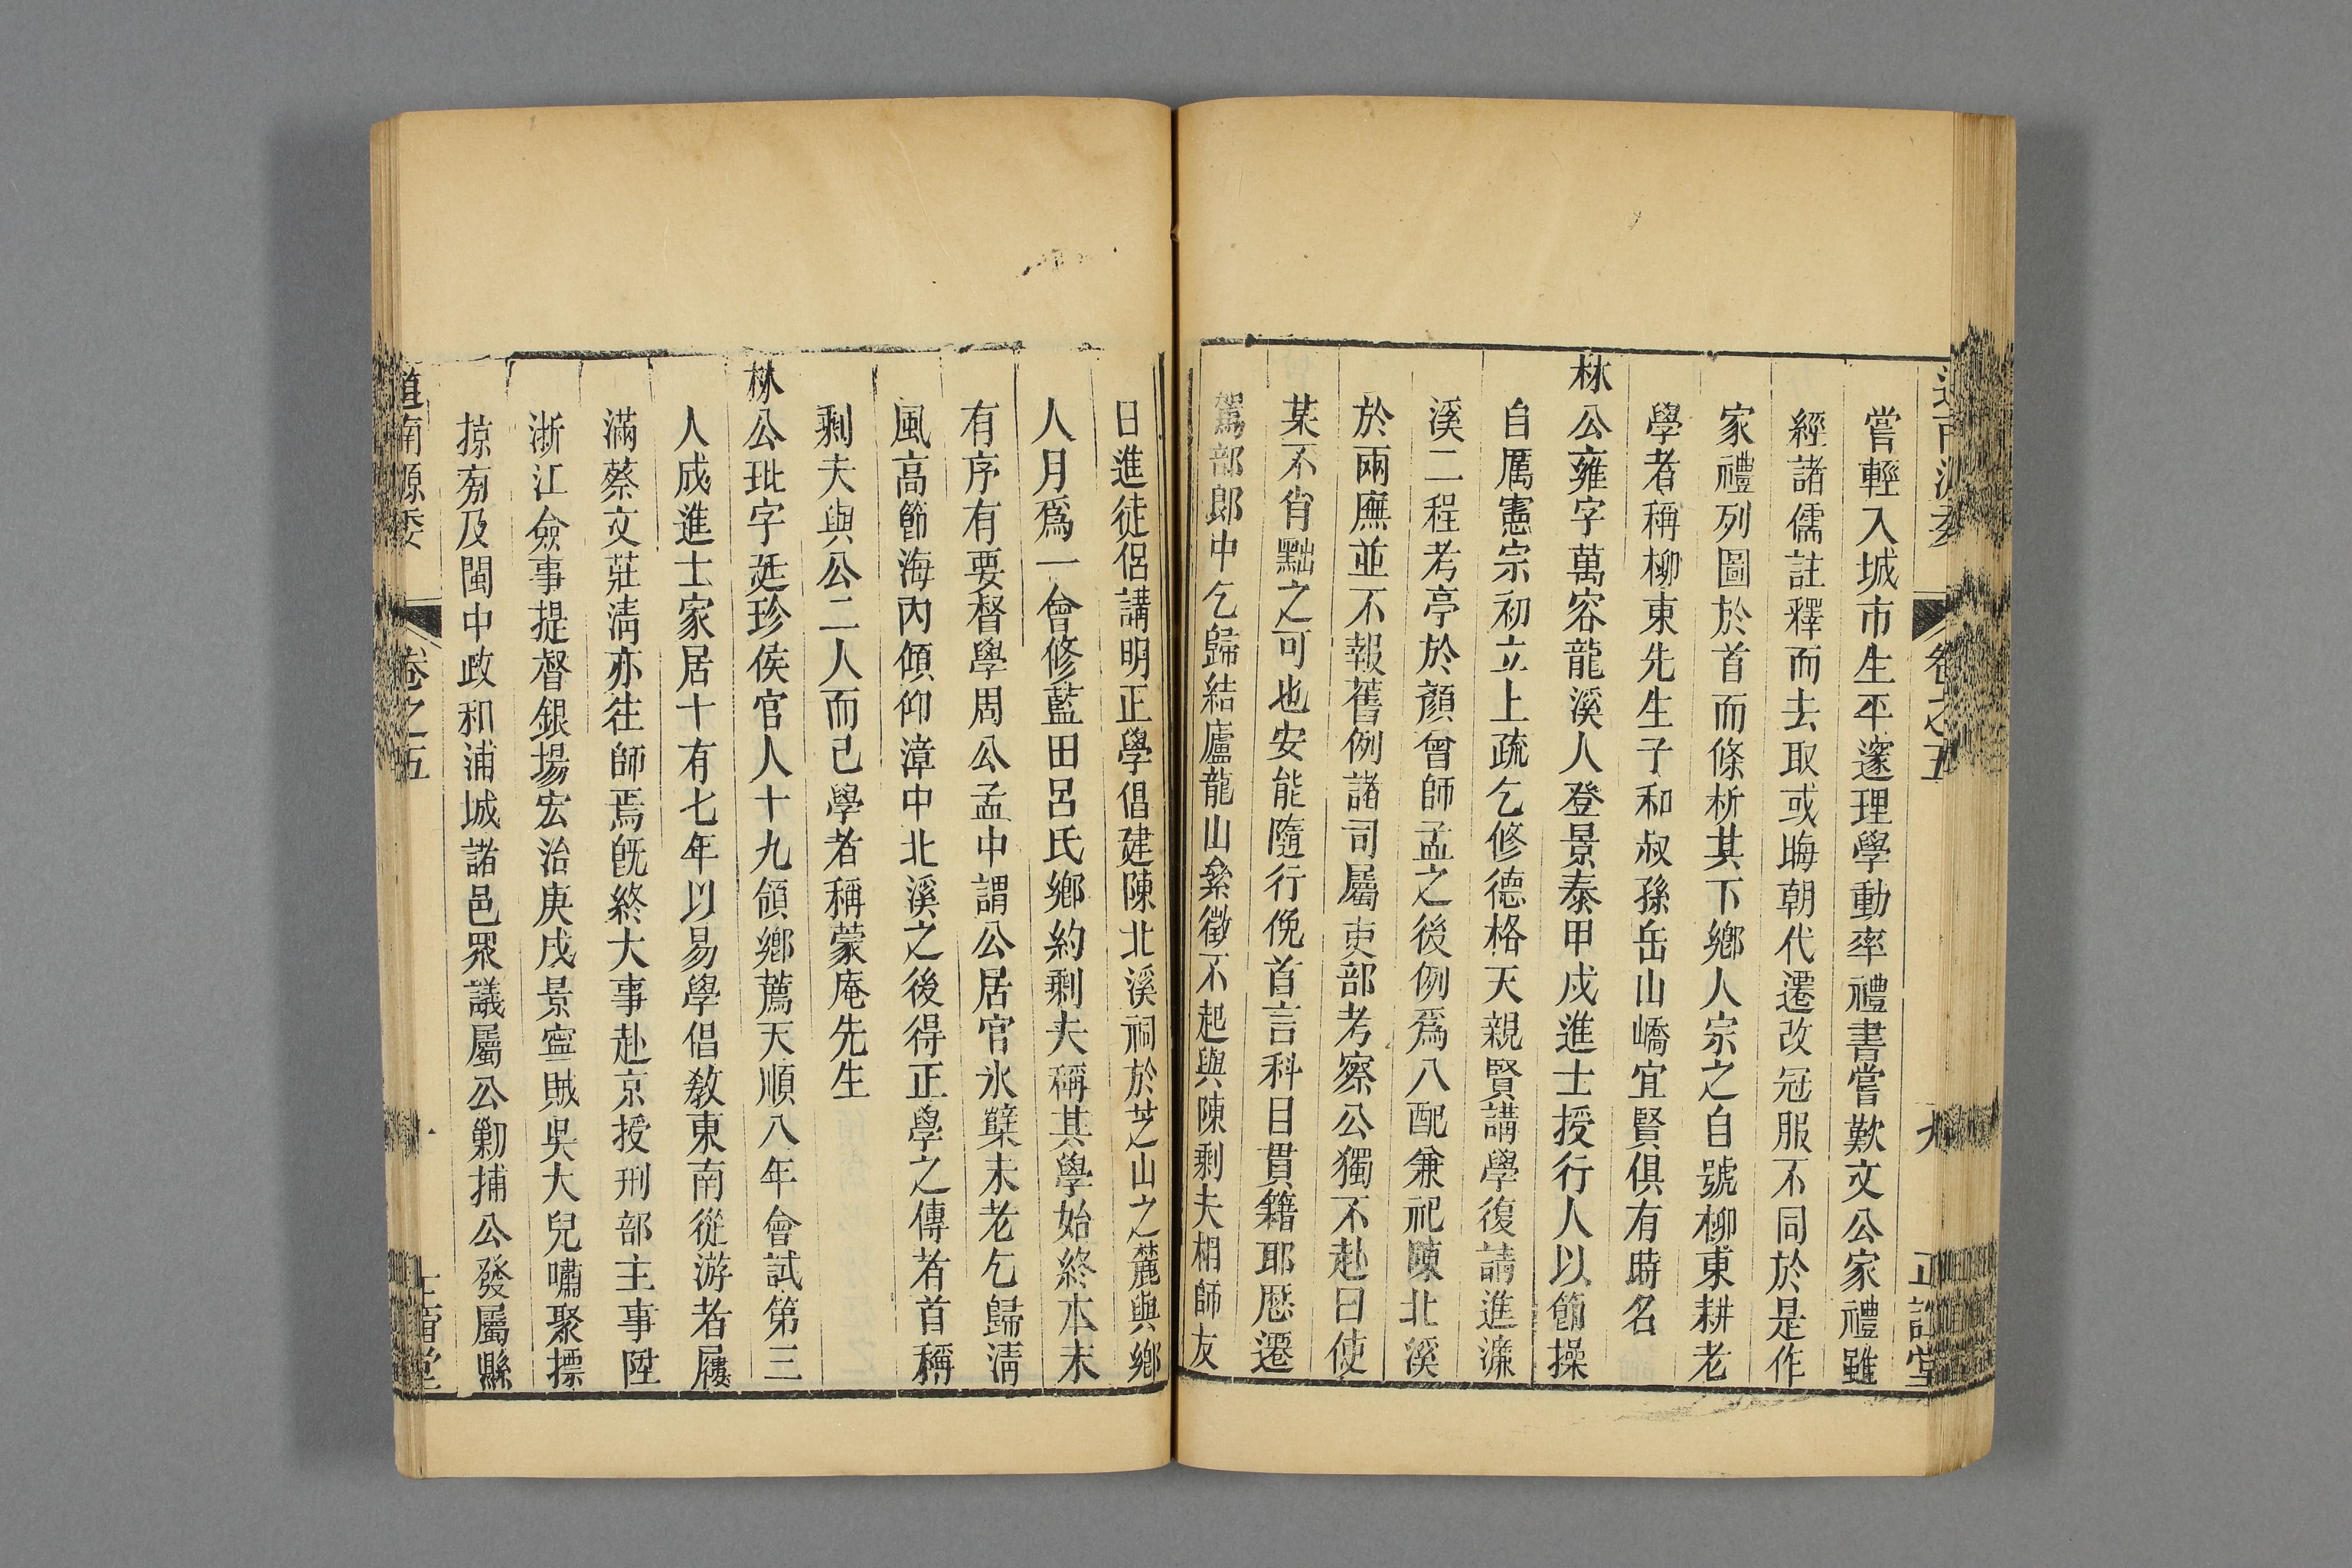 嘗輕入城市生平邃理學動率禮書嘗歎文公家禮雖
經諸儒註釋而去取或晦朝代遷改冠服不同於是作
家禮列圖於首而條析其下鄉人宗之自號柳東耕老
學者稱柳東先生子和叔孫岳山嶠宜賢俱有時名
林公雍字萬容龍溪人登景泰甲戍進士授行人以節操
自厲憲宗初立上疏乞修德格天親賢講學復請進濂
溪二程考亭於顏曾師孟之後例爲八配兼祀陳北溪
於兩廡並不報舊例諸司屬吏部考察公獨不赴曰使
某不肖黜之可也安能隨行俛首言科目貫籍耶歷遷
駕部郎中乞歸結廬龍山絫徵不起與陳剩夫相師友
日進徒侶講明正學倡建陳北溪祠於芝山之麓與鄉
人月爲一會修藍田呂氏鄉約剩夫稱其學始終本末
有序有要督學周公孟中謂公居官氷櫱未老乞歸淸
風高節海內傾仰漳中北溪之後得正學之傳者首稱
剩夫與公二人而已學者稱蒙庵先生
林公玭字廷珍侯官人十九領鄉薦天順八年會試第三
人成進士家居十有七年以易學倡教東南從游者屨
滿蔡文莊淸亦往師焉旣終大事赴京授刑部主事陞
浙江僉事提督銀場宏治庚戍景寧賊吳大兒嘯聚摽
掠旁及閩中政和浦城諸邑眾議屬公勦捕公發屬縣
道南源委 卷之五